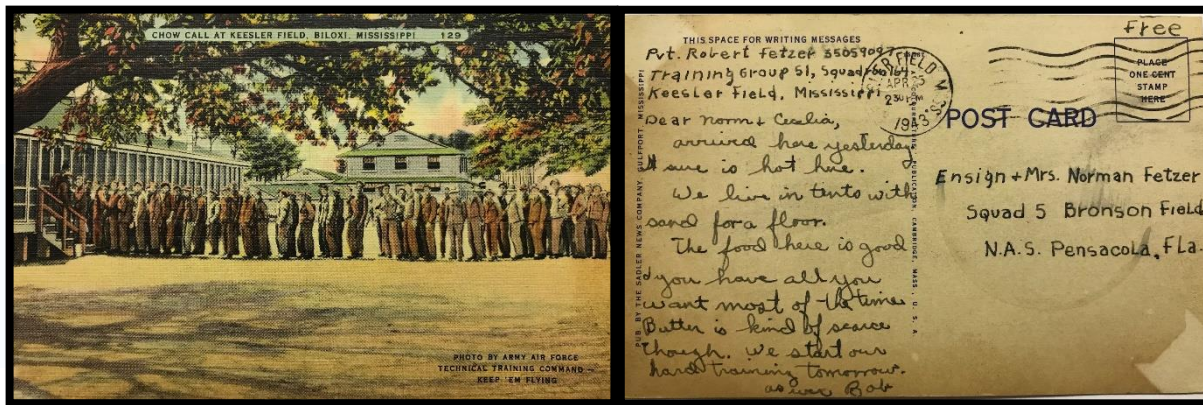 CHOW CALL AT KEESLER FIELD, BILOXI, MISSISSIPPI 129
PHOTO BY ARMY AIR FORCE
TECHNICAL TRAINING COMMAND —
KEEP 'EM FLYING
THIS SPACE FOR WRITING MESSAGES
Pvt. Robert Fetzer 35059097
Training Group 51, Squadron
Keesler Field, Mississippi
Dear Norm + Cecelia,
arrived here yesterday
sure is hot here.
We live in tents with
sand for a floor.
The food here is good
you have all you
want most of the time
Butter is kind of scarce
though. We start our
hard training tomorrow.
as ever Bob
PUB. BY THE SADLER NEWS COMPANY, GULFPORT, MISSISSIPPI
PUBLICATION, CAMBRIDGE, MASS., U. S. A.
FIELD MISS.
APR
230 PM
1943
Free
PLACE
ONE CENT
STAMP
HERE
POST CARD
Ensign + Mrs. Norman Fetzer
Squad 5 Bronson Field
N.A.S. Pensacola, Fla.